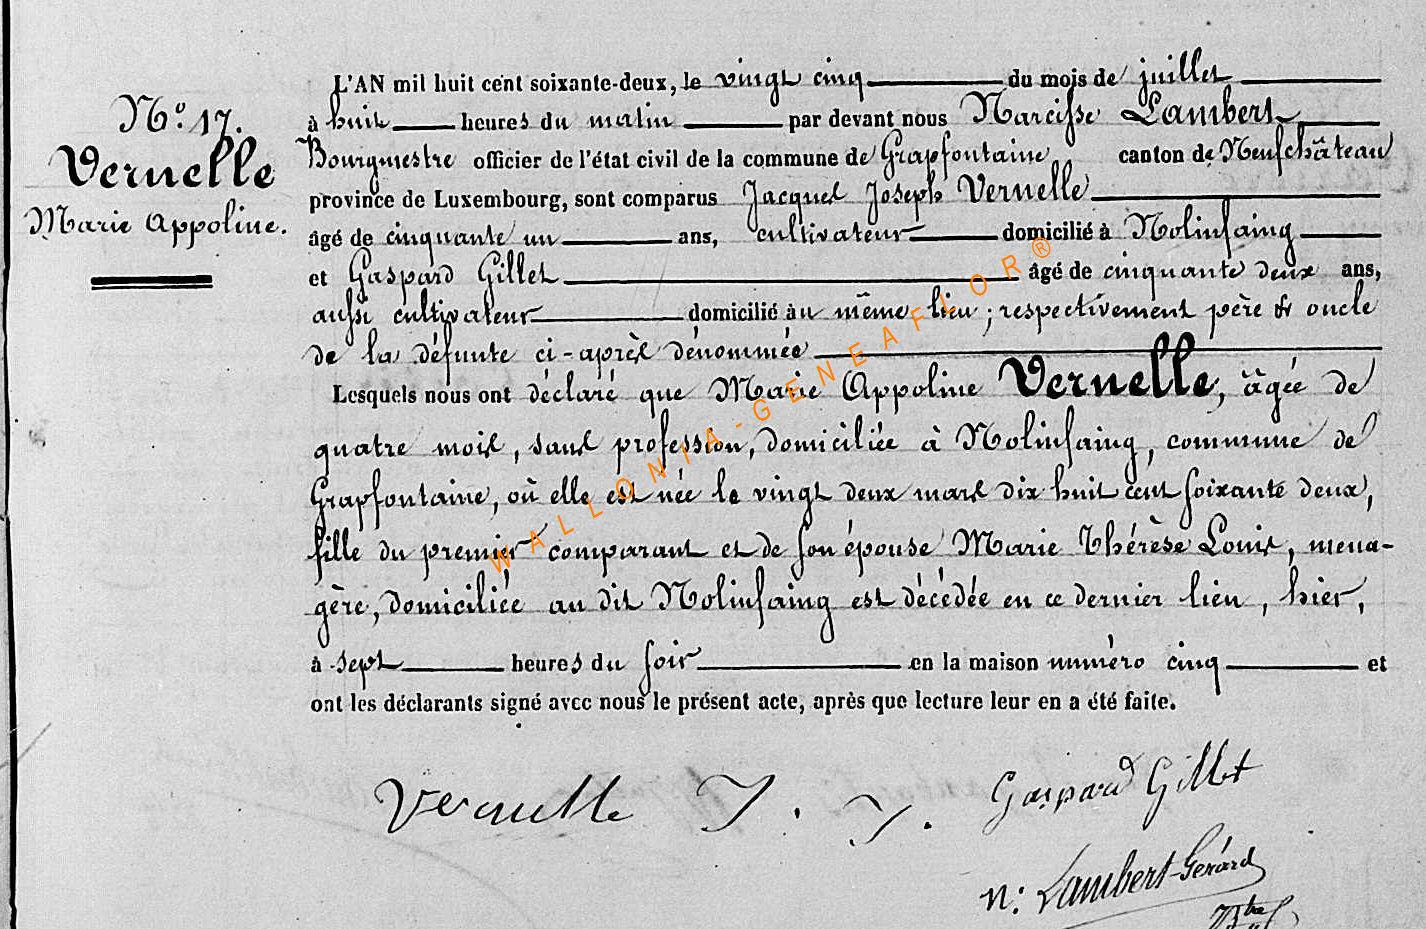 N.º 17.
Vernelle
Marie Appoline.
L'AN mil huit cent soixante-deux, le vingt cinq du mois de juillet
à huit heures du matin par devant nous Narcisse Lambert
Bourgmestre officier de l'état civil de la commune de Grapfontaine canton de Neufchâteau
province de Luxembourg, sont comparus Jacques Joseph Vernelle
âgé de cinquante un ans, cultivateur domicilié à Nolinfaing
et Gaspard Gillet âgé de cinquante deux ans,
aussi cultivateur domicilié au même lieu ; respectivement père & oncle
de la défunte ci-après dénommée
Lesquels nous ont déclaré que Marie Appoline Vernelle, âgée de
quatre mois, sans profession, domiciliée à Nolinfaing, commune de
Grapfontaine, où elle est née le vingt deux mars dix huit cent soixante deux,
fille du premier comparant et de son épouse Marie Thérèse Louis, mena-
gère, domiciliée au dit Nolinfaing est décédée en ce dernier lieu, hier,
à sept heures du soir en la maison numéro cinq et
ont les déclarants signé avec nous le présent acte, après que lecture leur en a été faite.
Vernelle J. J. Gaspard Gillet
N: Lambert-Gérard
WALLONIA-GENEAFLOR®